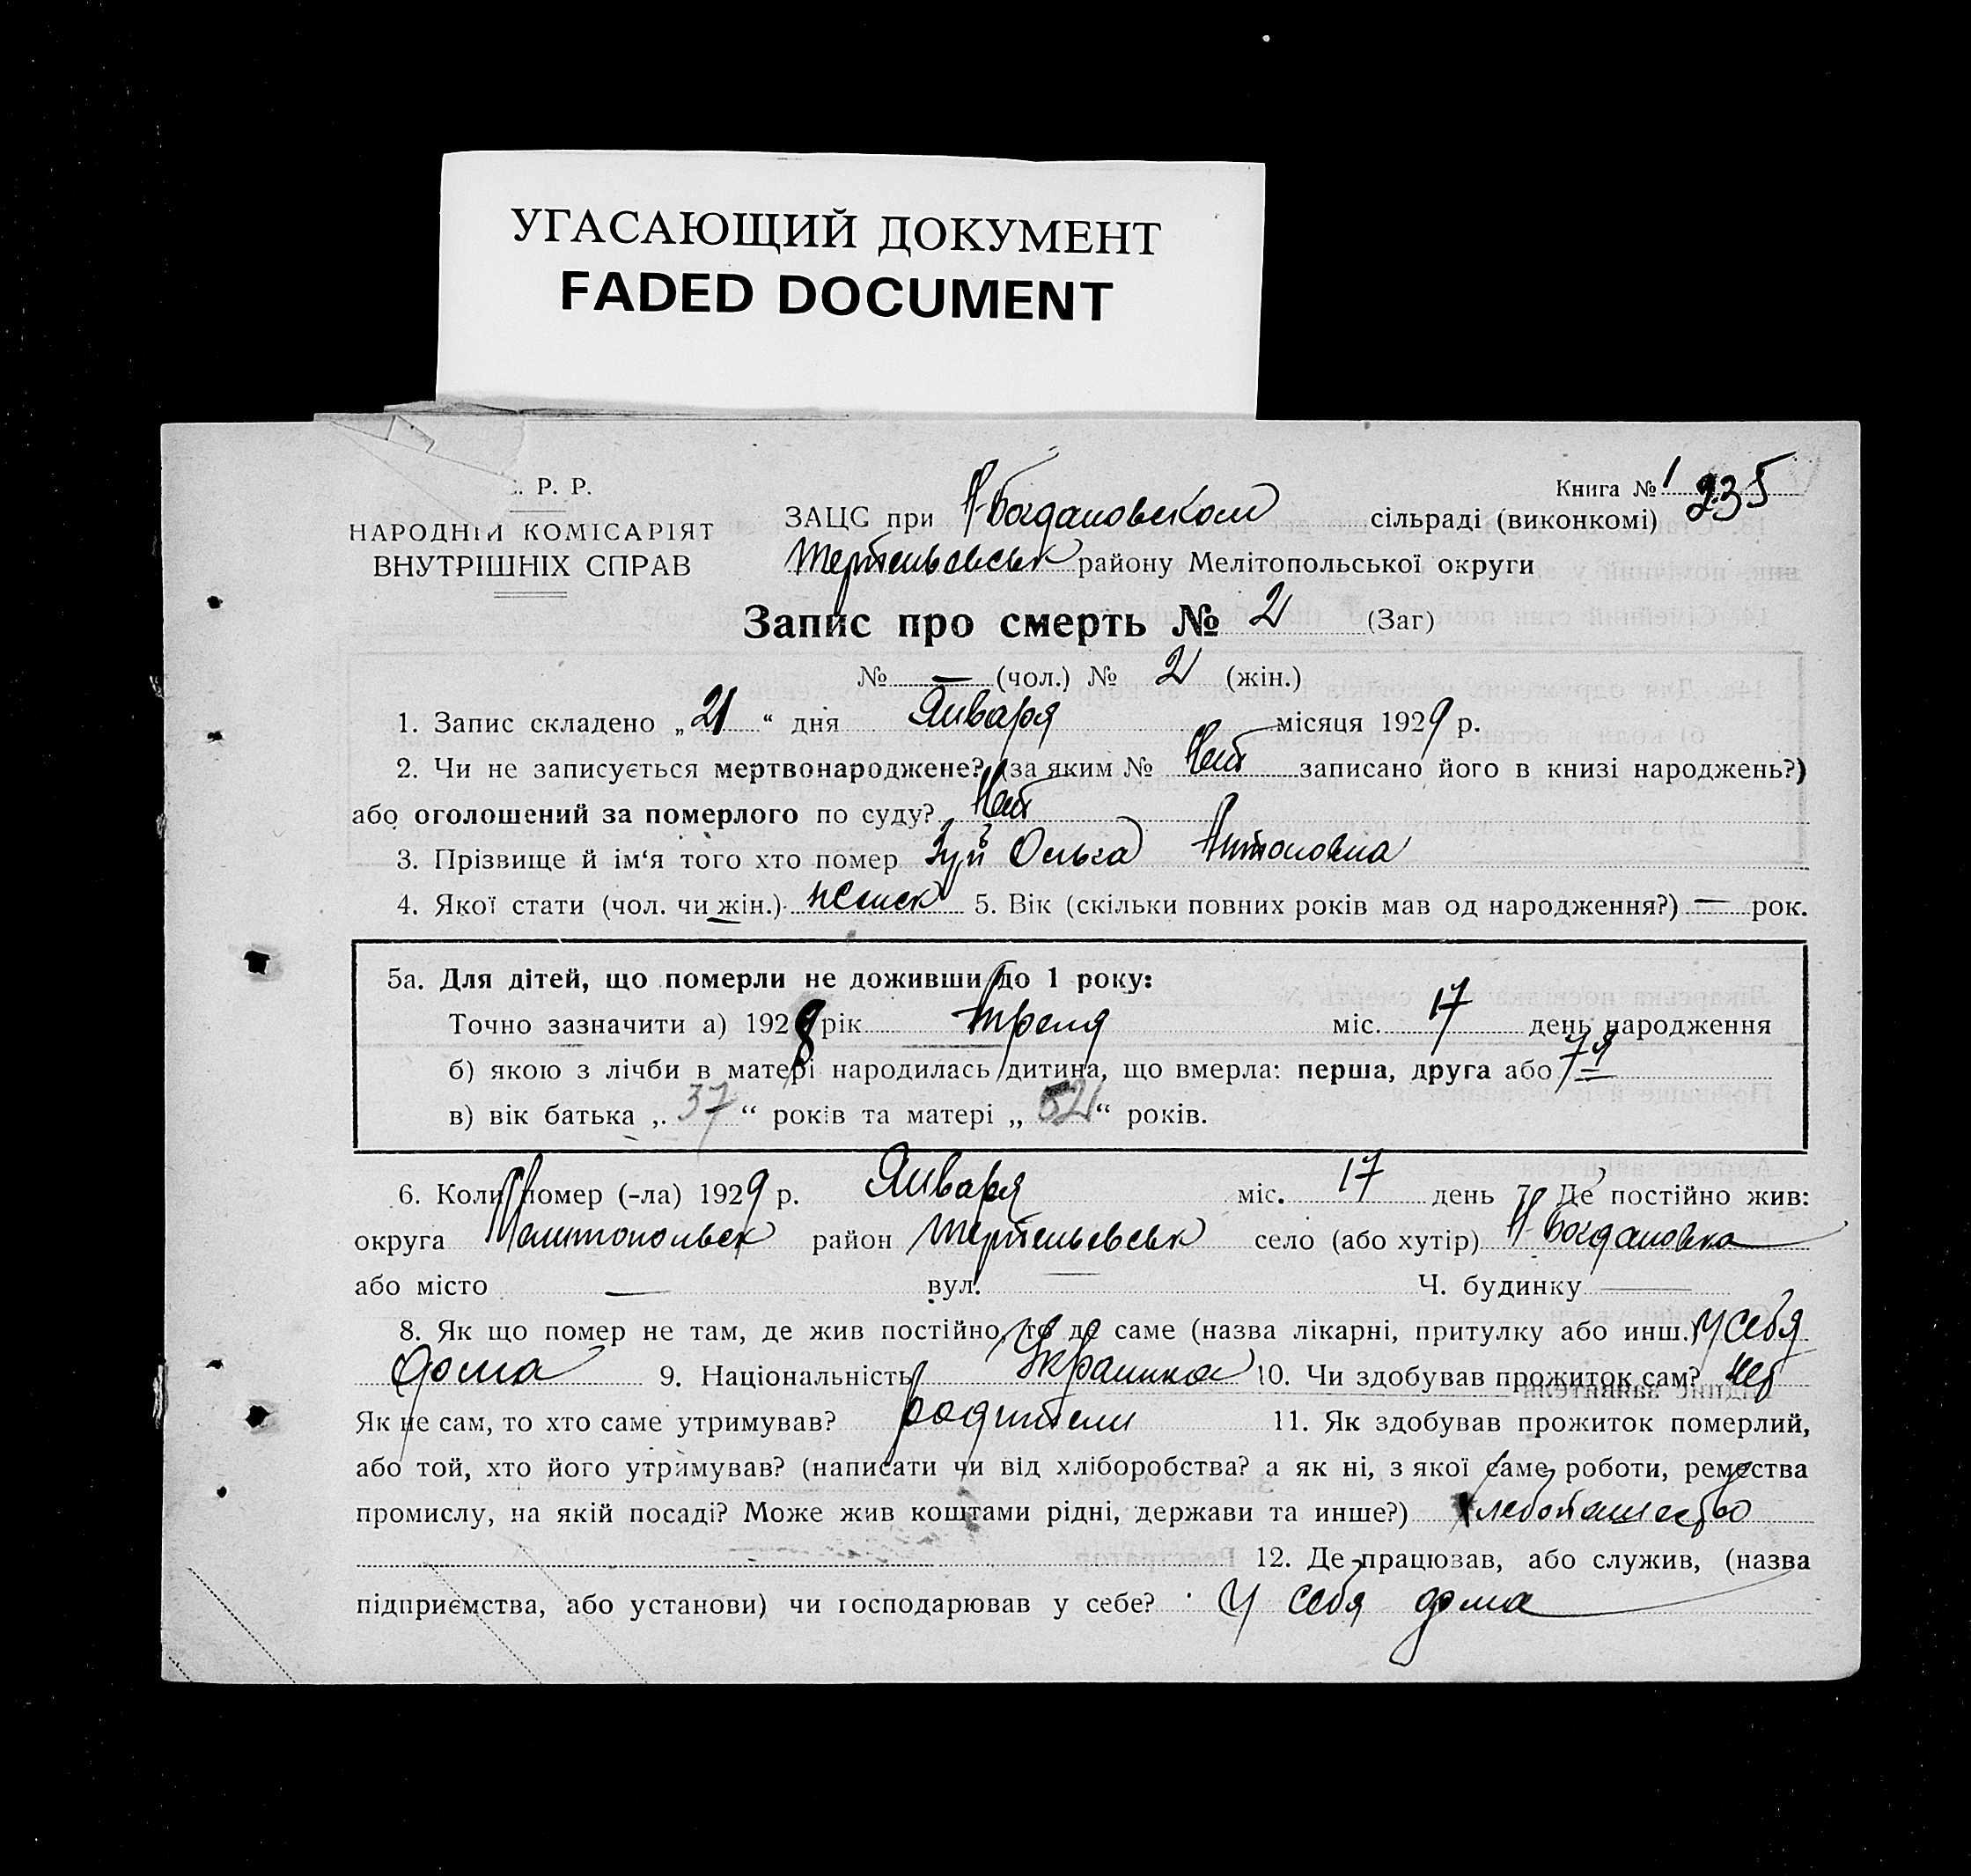 УГАСАЮЩИЙ ДОКУМЕНТ
FADED DOCUMENT
Р. Р.
НАРОДНІЙ КОМІСАРІЯТ
ВНУТРІШНІХ СПРАВ
Книга № 1 235
ЗАЦС при Н-Богдановском сільраді (виконкомі)
району Мелітопольської округи
Запис про смерть № 2 (Заг)
№ — (чол.) № 2 (жін.)
1. Запис складено „21“ дня Января місяця 1929 р.
2. Чи не записується мертвонароджене? (за яким № Нет записано його в книзі народжень?)
або оголошений за померлого по суду? Нет
3. Прізвище й ім‘я того хто помер Зуй Ольга Антоновна
4. Якої стати (чол. чи жін.) женск 5. Вік (скільки повних років мав од народження?) — рок.
5а. Для дітей, що померли не доживши до 1 року:
Точно зазначити а) 1928 рік міс. 17 день народження
б) якою з лічби в матері народилась дитина, що вмерла: перша, друга або 7я
в) вік батька „37“ років та матері „ “ років.
6. Коли помер (-ла) 1929 р. Января міс. 17 день 7. Де постійно жив:
округа Мелитопольск район село (або хутір) Н Богдановка
або місто — вул. — Ч. будинку —
8. Як що помер не там, де жив постійно, то де саме (назва лікарні, притулку або инш.) У себя
дома 9. Національність Украинка 10. Чи здобував прожиток сам? нет
Як не сам, то хто саме утримував? родители 11. Як здобував прожиток померлий,
або той, хто його утримував? (написати чи від хліборобства? а як ні, з якої саме роботи, ремества
промислу, на якій посаді? Може жив коштами рідні, держави та инше?) хлебопашество
12. Де працював, або служив, (назва
підприємства, або установи) чи господарював у себе? У себя дома